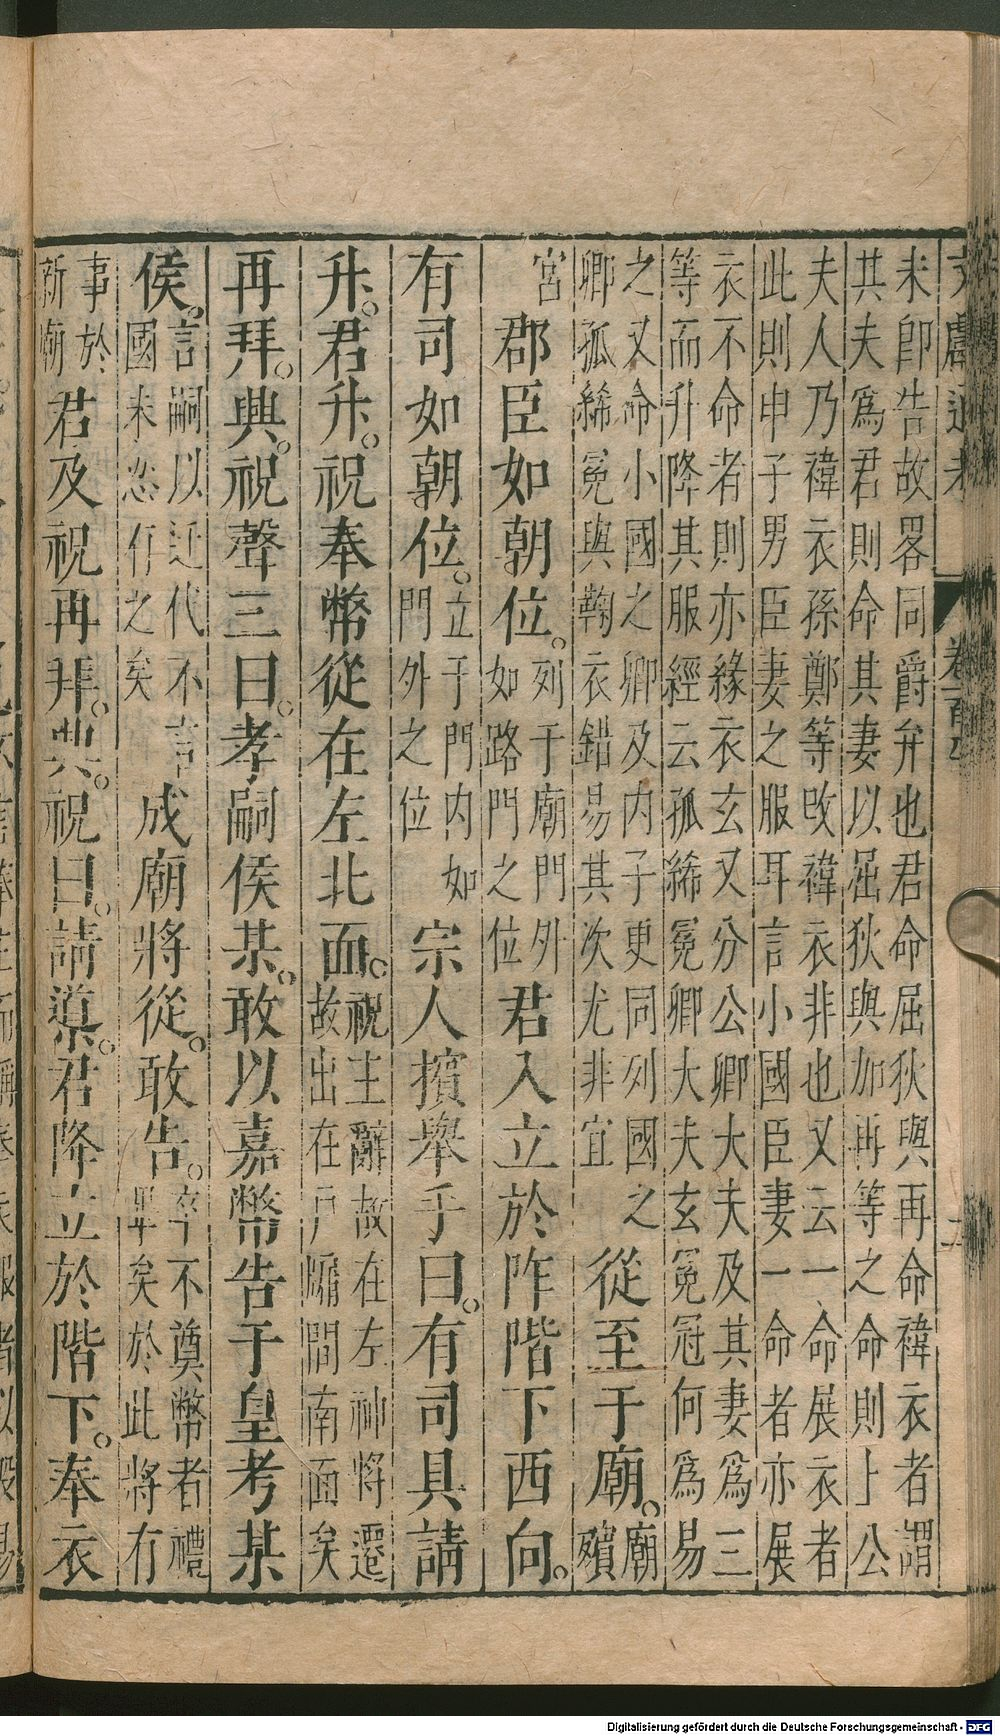 未卽告故畧同爵弁也君命屈狄與再命褘衣者謂
其夫爲君則命其妻以屈狄與加再等之命則上公
夫人乃褘衣孫鄭等攺褘衣非也又云一命展衣者
此則申子男臣妻之服耳言小國臣妻一命者亦展
衣不命者則亦緣衣玄又分公卿大夫及其妻爲三
等而升降其服經云孤絺冕卿大夫玄冕冠何爲易
之又命小國之卿及内子更同列國之
卿孤絺冕與鞠衣錯易其次尤非宜
從至于廟。
廟
殯
宮
郡臣如朝位。
列于廟門外
如路門之位
君入立於阼階下西向。
有司如朝位。
立于門内如
門外之位
宗人擯舉手曰。有司具請
升。君升。祝奉幣從在左北面。
祝主辭故在左神將遷
故出在戸牖間南面矣
再拜。興。祝聲三曰。孝嗣侯某。敢以嘉幣告于皇考某
侯。
言嗣以近代不言
國未忍有之矣
成廟將從。敢告。
卒不奠幣者禮
畢矣於此將有
事於
新廟
君及祝再拜。興。祝曰。請導。君降立於階下。奉衣
Digitalisierung gefördert durch die Deutsche Forschungsgemeinschaft - DFG